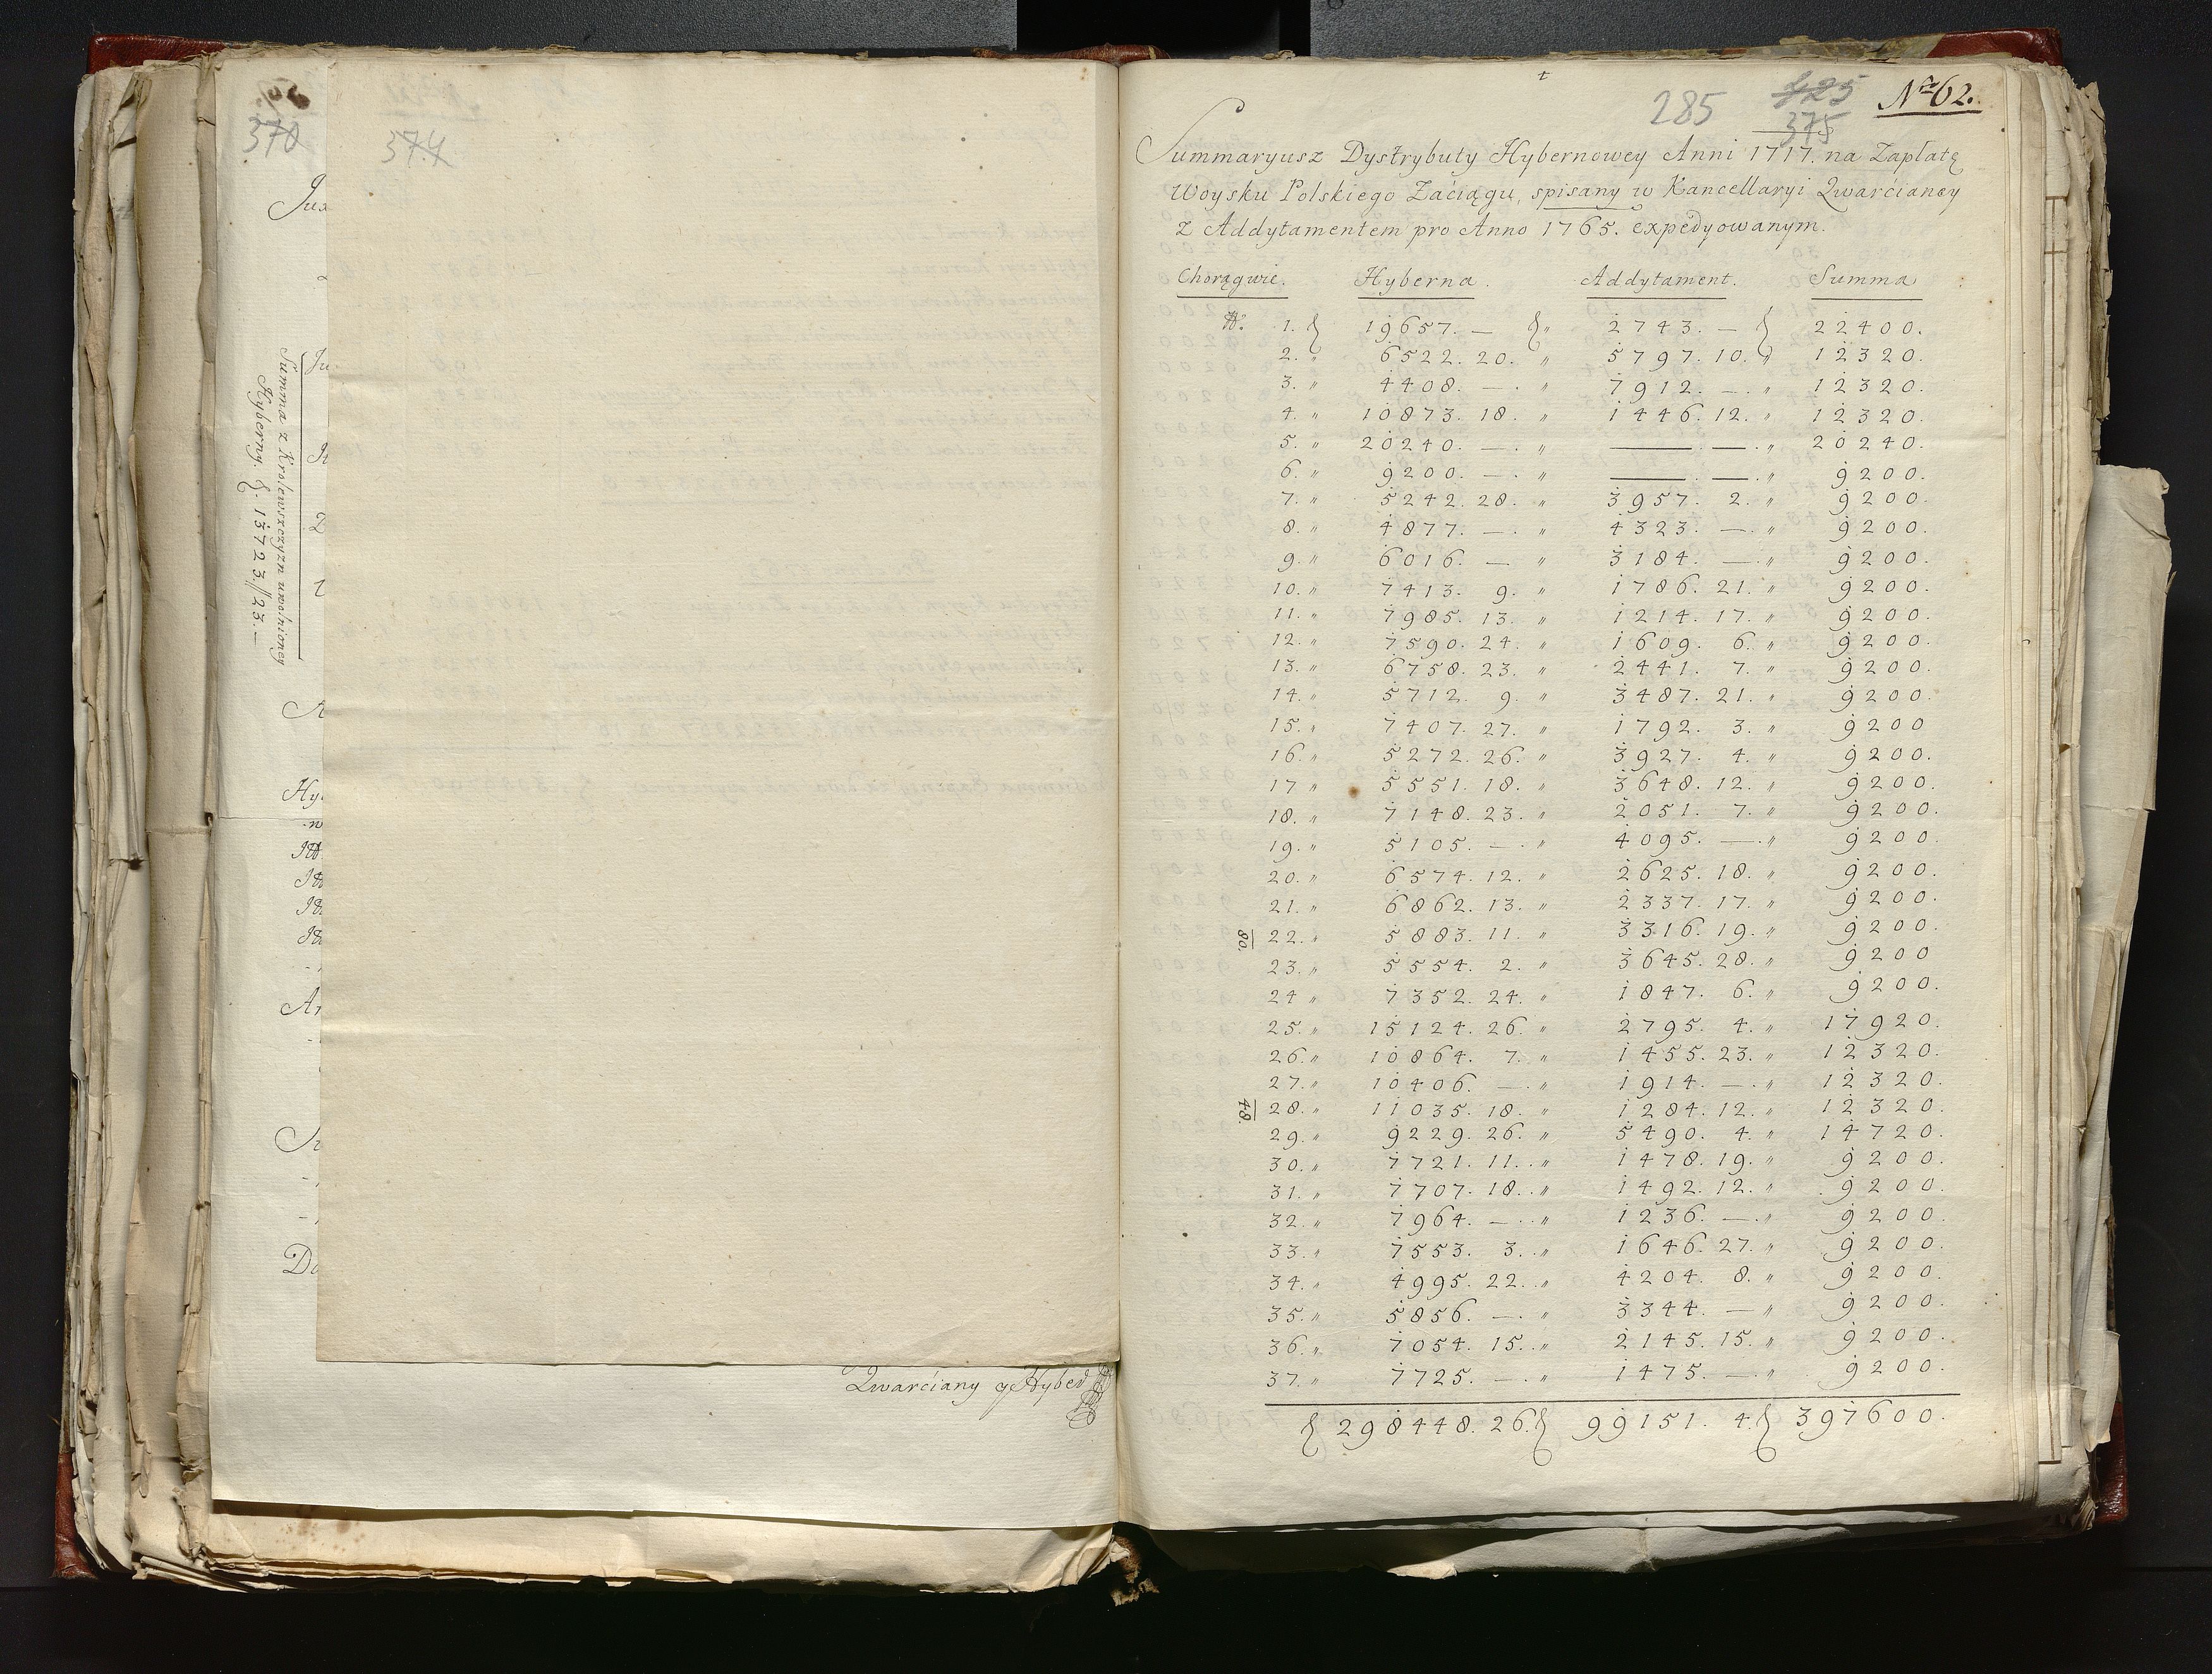 370
374
Jux
Summa z Krolewszczyzn uwolnioney
Hyberny. 13723.//23.—
Qwarciany y Hyber
285 425 No 62.
375
Summaryusz Dystrybuty Hybernowey Anni 1717. na Zapłatę
Woysku Polskiego Zaciągu, spisany w Kancellaryi Qwarcianey
z Addytamentem pro Anno 1765. expedyowanym.
Chorągwie. Hyberna. Addytament. Summa
No. 1. 19657. — " 2743. — 22400.
2. " 6522. 20. " 5797. 10. " 12320.
3. " 4408. —. " 7912. —. " 12320.
4. " 10873. 18. " 1446. 12. " 12320.
5. " 20240. —. " —— —. " 20240.
6. " 9200. —. " ——. —. " 9200.
7. " 5242. 28. " 3957. 2. " 9200.
8. " 4877. —. " 4323. —. " 9200.
9. " 6016. — " 3184. —. " 9200.
10. " 7413. 9. " 1786. 21. " 9200.
11. " 7985. 13. " 1214. 17. " 9200.
12. " 7590. 24. " 1609. 6. " 9200.
13. " 6758. 23. " 2441. 7. " 9200.
14. " 5712. 9. " 3487. 21. " 9200.
15. " 7407. 27. " 1792. 3. " 9200
16. " 5272. 26. " 3927. 4. " 9200.
17 " 5551. 18. " 3648. 12. " 9200.
18. " 7148. 23. " 2051. 7. " 9200.
19. " 5105. —. " 4095. —. " 9200.
20. " 6574. 12. " 2625. 18. " 9200.
21. " 6862. 13. " 2337. 17. " 9200.
80. 22. " 5883. 11. " 3316. 19. " 9200.
23. " 5554. 2. " 3645. 28. " 9200
24 " 7352. 24. " 1847. 6. " 9200.
25. " 15124. 26. " 2795. 4. " 17920.
26. " 10864. 7. " 1455. 23. " 12320.
27. " 10406. —. " 1914. —. " 12320.
48. 28. " 11035. 18. " 1284. 12. " 12320.
29. " 9229. 26. " 5490. 4. " 14720.
30. " 7721. 11. " 1478. 19. " 9200.
31. " 7707. 18. " 1492. 12. " 9200.
32. " 7964. —. " 1236. —. " 9200.
33. " 7553. 3. " 1646. 27. " 9200.
34. " 4995. 22. " 4204. 8. " 9200.
35. " 5856. —. " 3344. — " 9200.
36. " 7054. 15. " 2145. 15. " 9200.
37. " 7725. —. " 1475. —. " 9200.
298448. 26. 99151. 4. 397600.